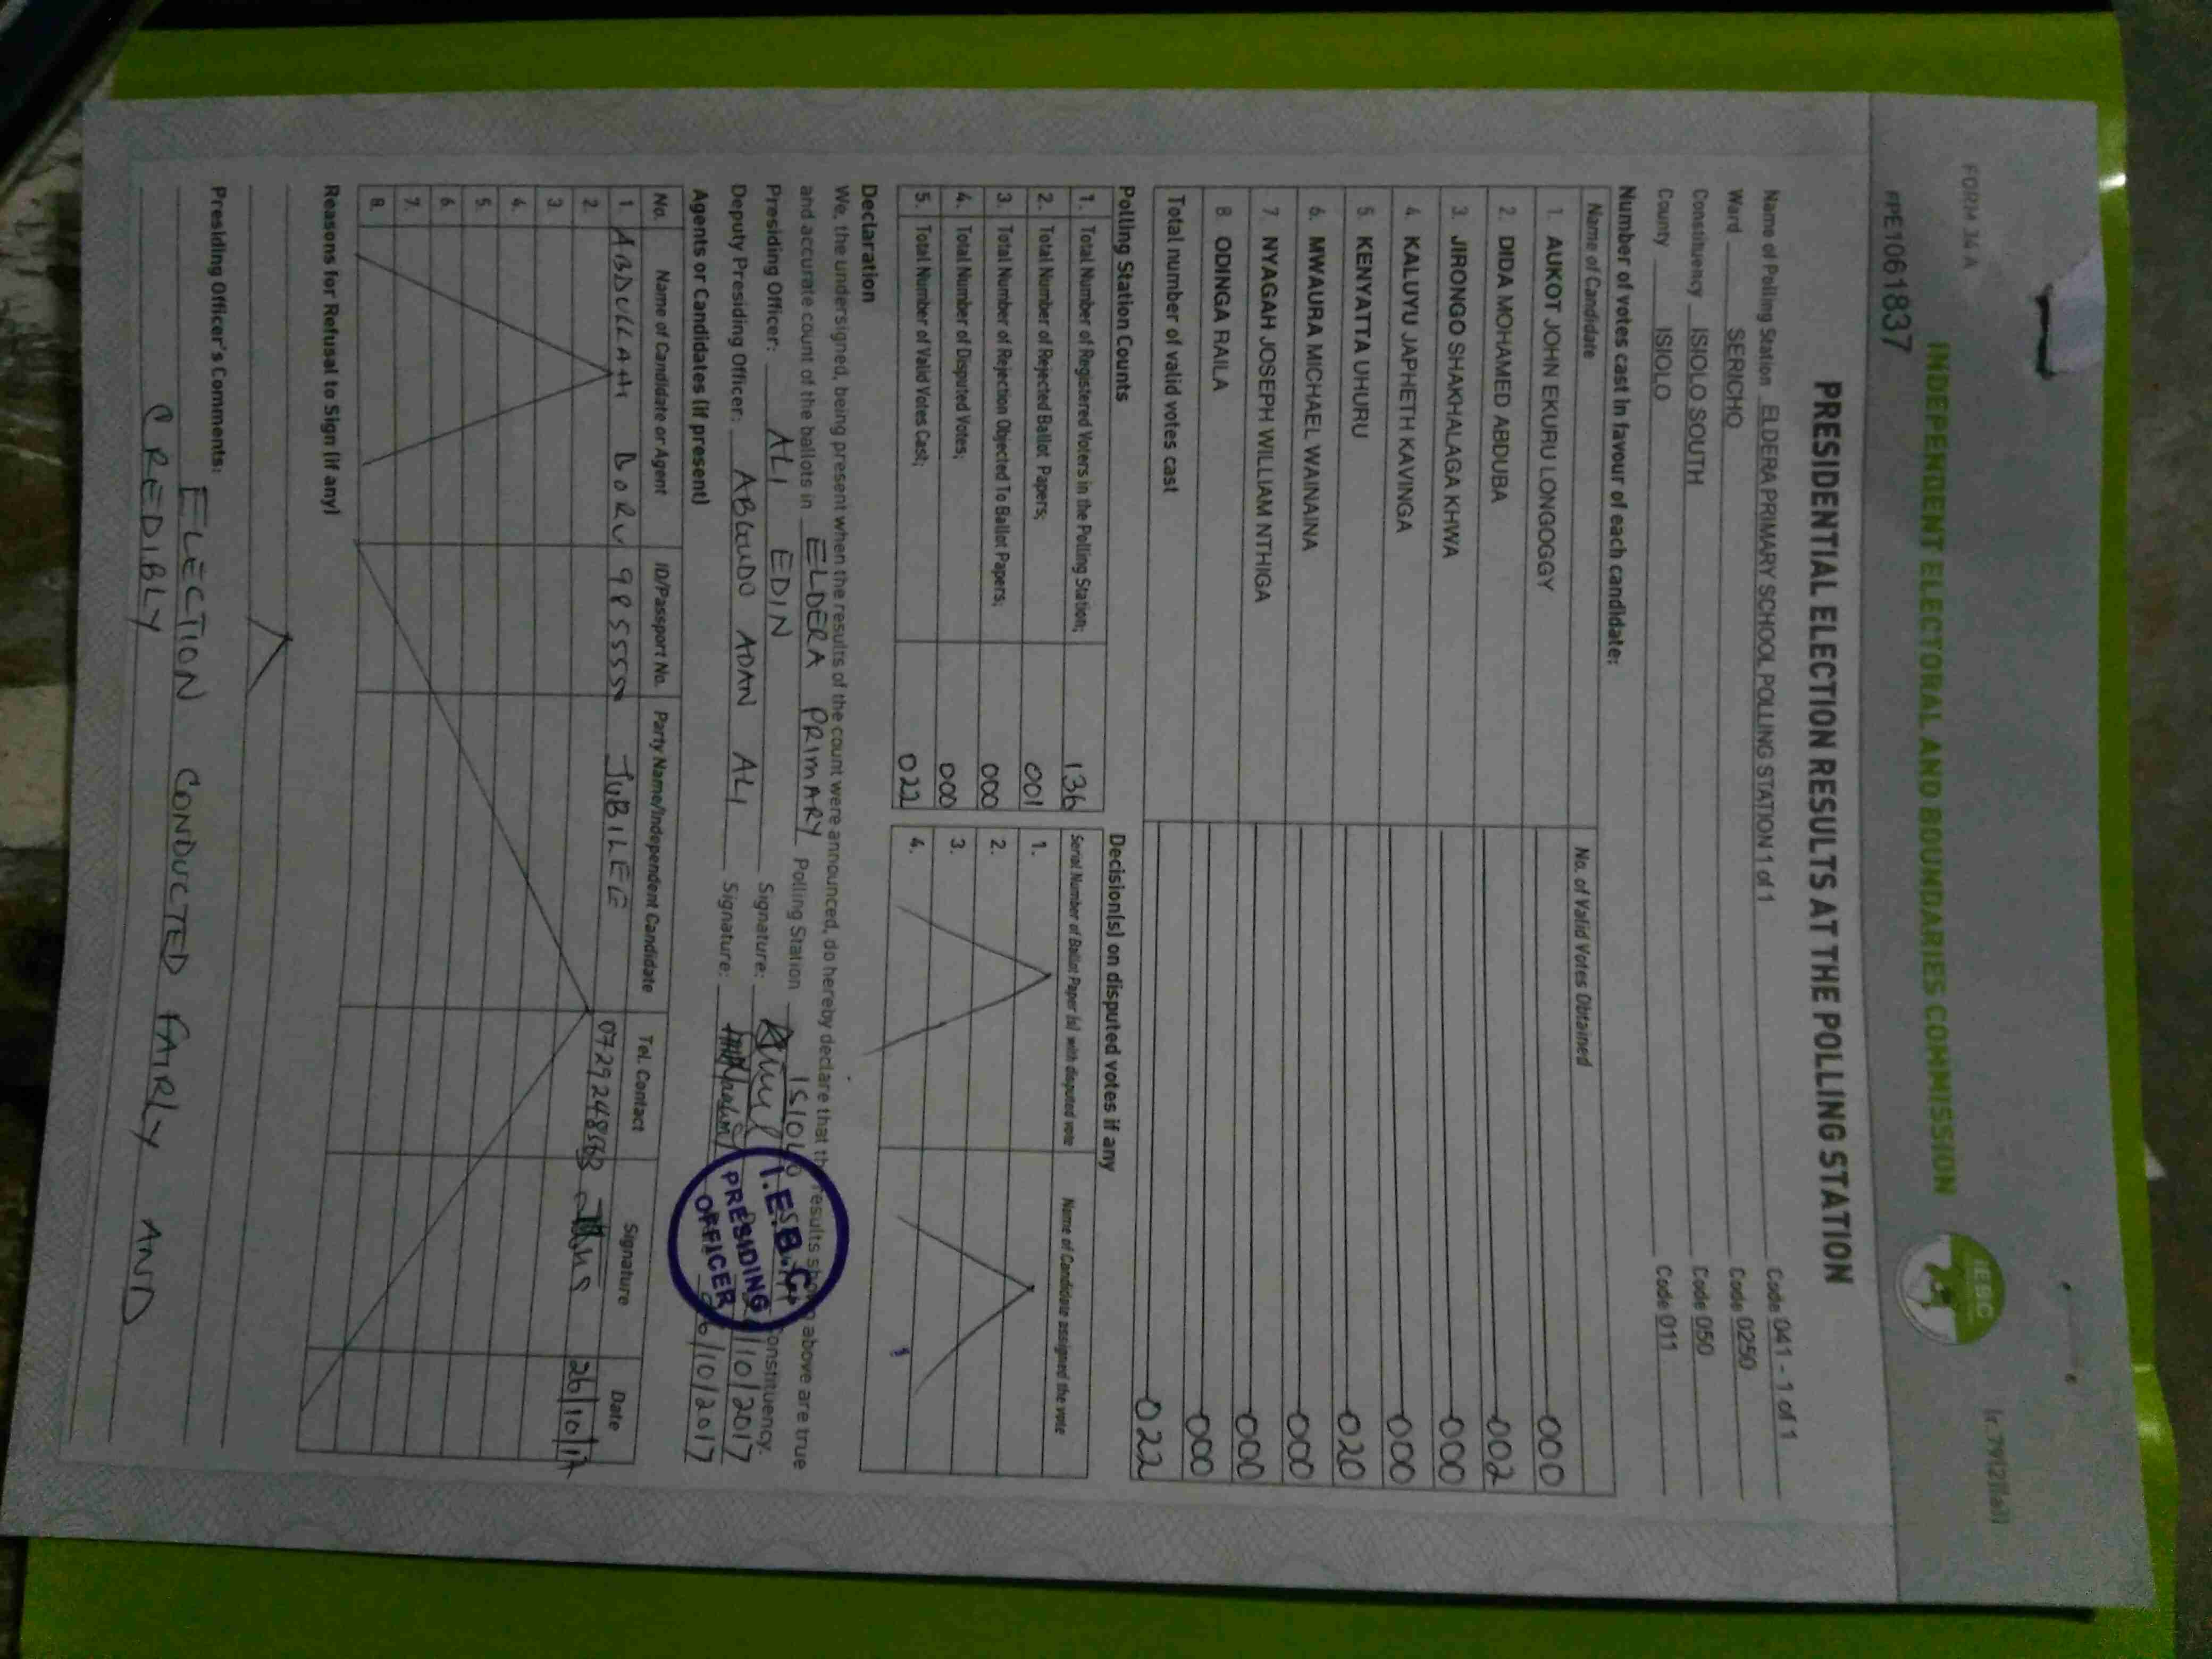 FORM 34A
INDEPENDENT ELECTORAL AND BOUNDARIES COMMISSION
IEBC
PRESIDENTIAL ELECTION RESULTS AT THE POLLING STATION
Name of Polling Station ELDERA PRIMARY SCHOOL POLLING STATION 1 of 1 Code 041 - 1 of 1
Ward SERICHO Code 0250
Constituency ISIOLO SOUTH Code 050
County ISIOLO Code 011
Number of votes cast in favour of each candidate:
Name of Candidate No. of Valid Votes Obtained
1. AUKOT JOHN EKURU LONGOGGY 000
2. DIDA MOHAMED ABDUBA 002
3. JIRONGO SHAKHALAGA KHWA 000
4. KALUYU JAPHETH KAVINGA 000
5. KENYATTA UHURU 020
6. MWAURA MICHAEL WAINAINA 000
7. NYAGAH JOSEPH WILLIAM NTHIGA 000
8. ODINGA RAILA 000
Total number of valid votes cast 022
Polling Station Counts
1. Total Number of Registered Voters in the Polling Station; 136
2. Total Number of Rejected Ballot Papers; 001
3. Total Number of Rejection Objected To Ballot Papers; 000
4. Total Number of Disputed Votes; 000
5. Total Number of Valid Votes Cast; 022
Decision(s) on disputed votes if any
Serial Number of Ballot Paper (s) with disputed vote Name of Candidate assigned the vote
1.
2.
3.
4.
Declaration
We, the undersigned, being present when the results of the count were announced, do hereby declare that the results shown above are true
and accurate count of the ballots in ELDERA PRIMARY Polling Station ISIOLO Constituency.
Presiding Officer: ALI EDIN Signature: /10/2017
Deputy Presiding Officer: ADAN ALI Signature: 26/10/2017
I.E.B.C
PRESIDING
OFFICER
Agents or Candidates (if present)
No. Name of Candidate or Agent ID/Passport No. Party Name/Independent Candidate Tel. Contact Signature Date
1. ABDULLAHI BORU JUBILEE 26/10/17
2.
3.
4.
5.
6.
7.
8.
Reasons for Refusal to Sign (if any)
Presiding Officer's Comments:
ELECTION CONDUCTED FAIRLY AND
CREDIBLY